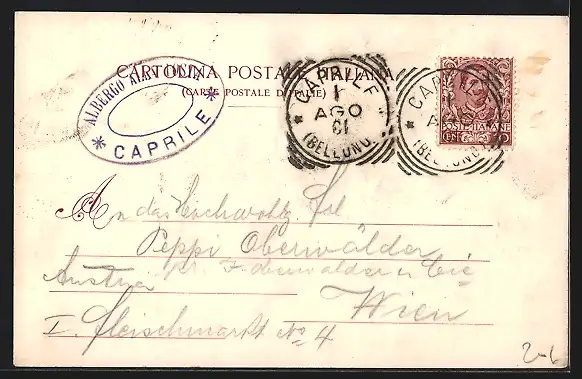 CARTOLINA POSTALE ITALIANA
(CARTE POSTALE D'ITALIE)
ALBERGO
* CAPRILE *
CAPRILE
1
AGO
(BELLUNO)
CAPRILE
AGO
(BELLUNO)
POSTE ITALIANE
An das
Peppi Oberwalder
Austria
Wien
I. Fleischmarkt No 4